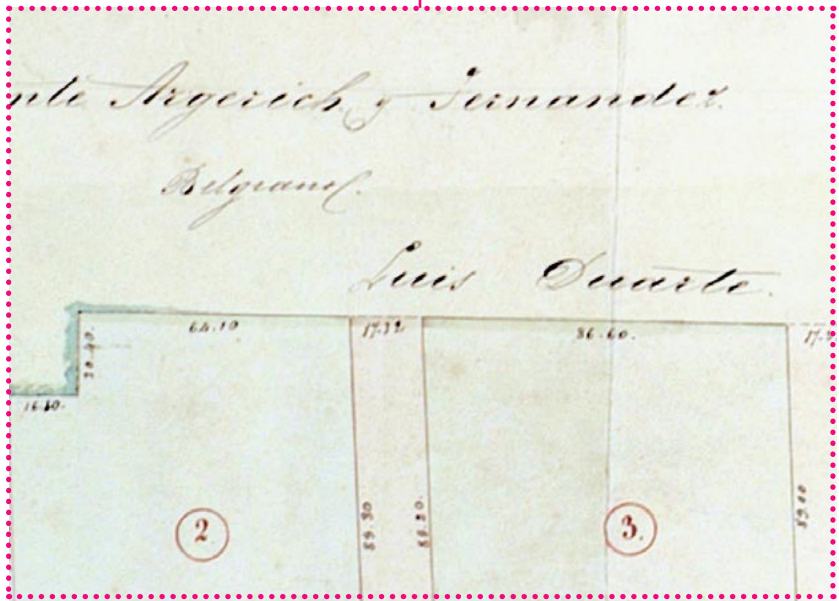 nte Argerich y Fernandez.
Belgrano.
Luis Duarte.
64.10 17.32 86.60. 17.3
20.40.
16.80.
89.30 88.80. 89.00
2 3.